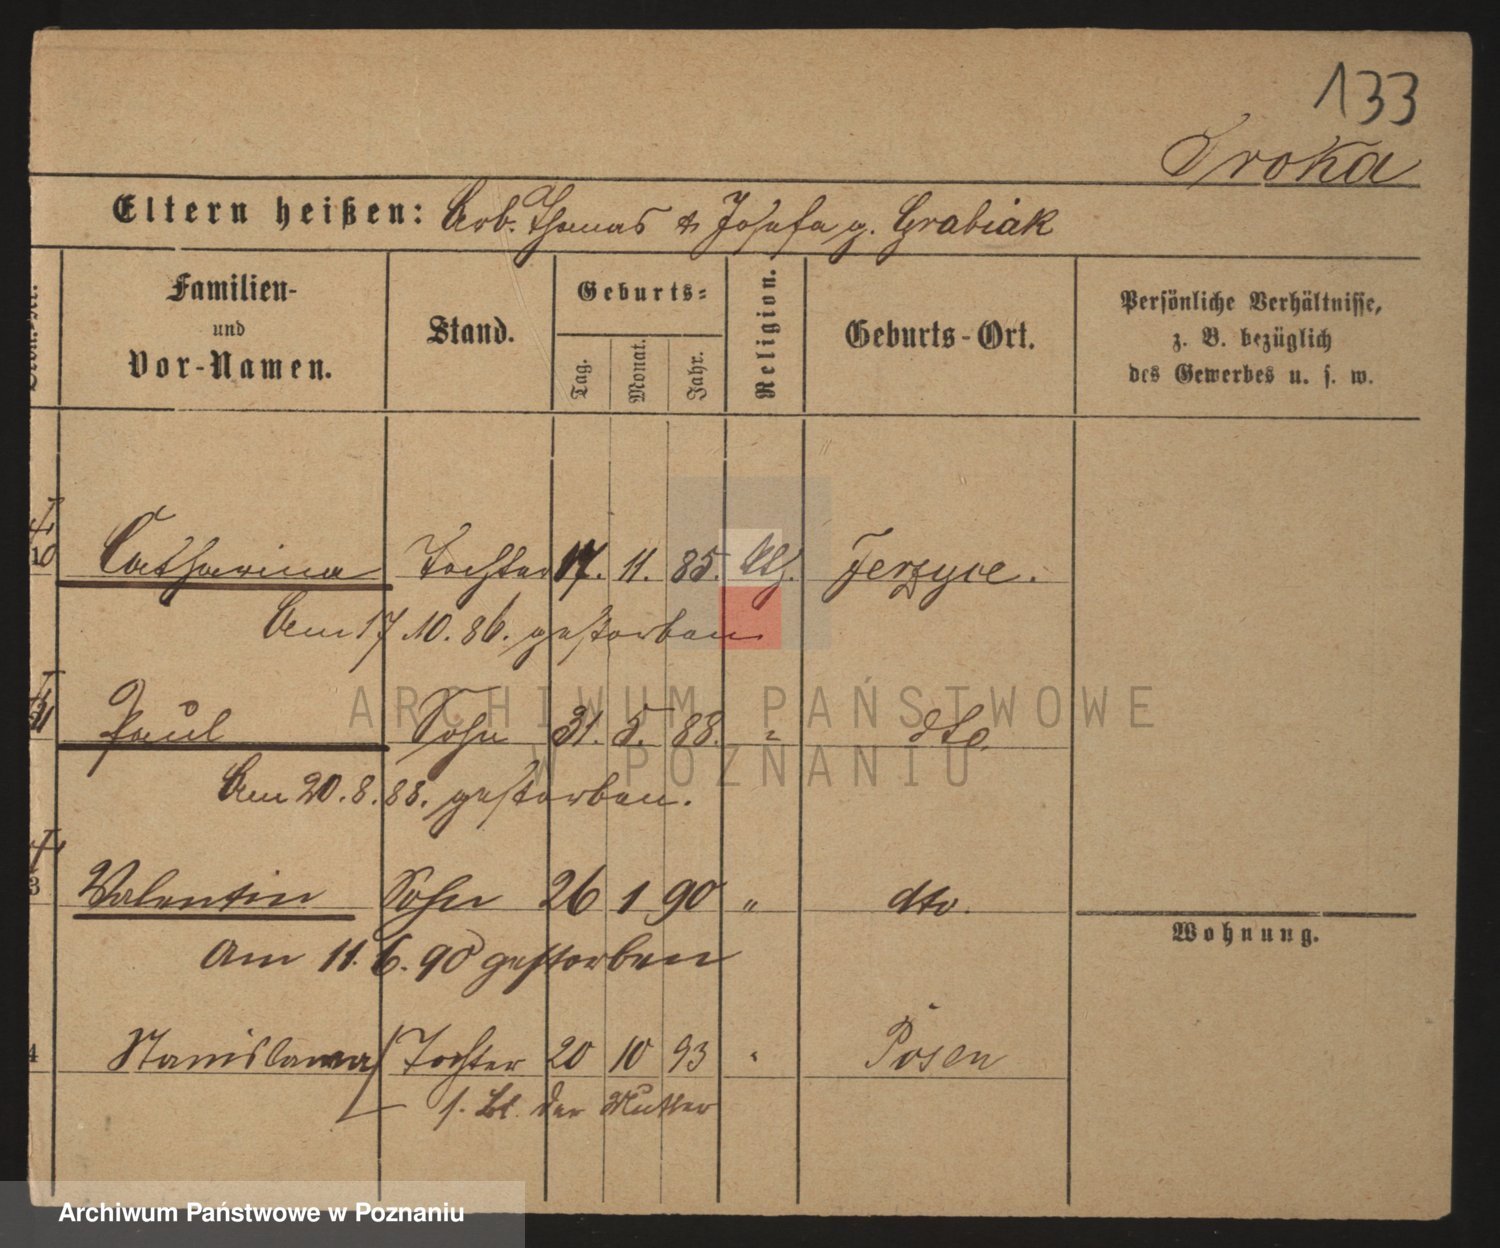 133
Sroka
Eltern heißen: Arb. Thomas & Josefa g. Grabiak
Familien-
und
Vor-Namen.
Stand.
Geburts-
Tag.
Monat.
Jahr.
Religion.
Geburts-Ort.
Persönliche Verhältnisse,
z. B. bezüglich
des Gewerbes u. s. w.
10 Catharina Tochter 17. 11. 85. kth. Jerzyce.
Am 17.10.86. gestorben
Paul Sohn 31. 5. 88. " dto.
Am 20.8.88. gestorben.
3 Valentin Sohn 26 1 90 " dto.
Am 11.6.90 gestorben
Wohnung.
4 Stanislawa Tochter 20 10 93 " Posen
s. Bl. der Mutter
ARCHIWUM PAŃSTWOWE
W POZNANIU
Archiwum Państwowe w Poznaniu